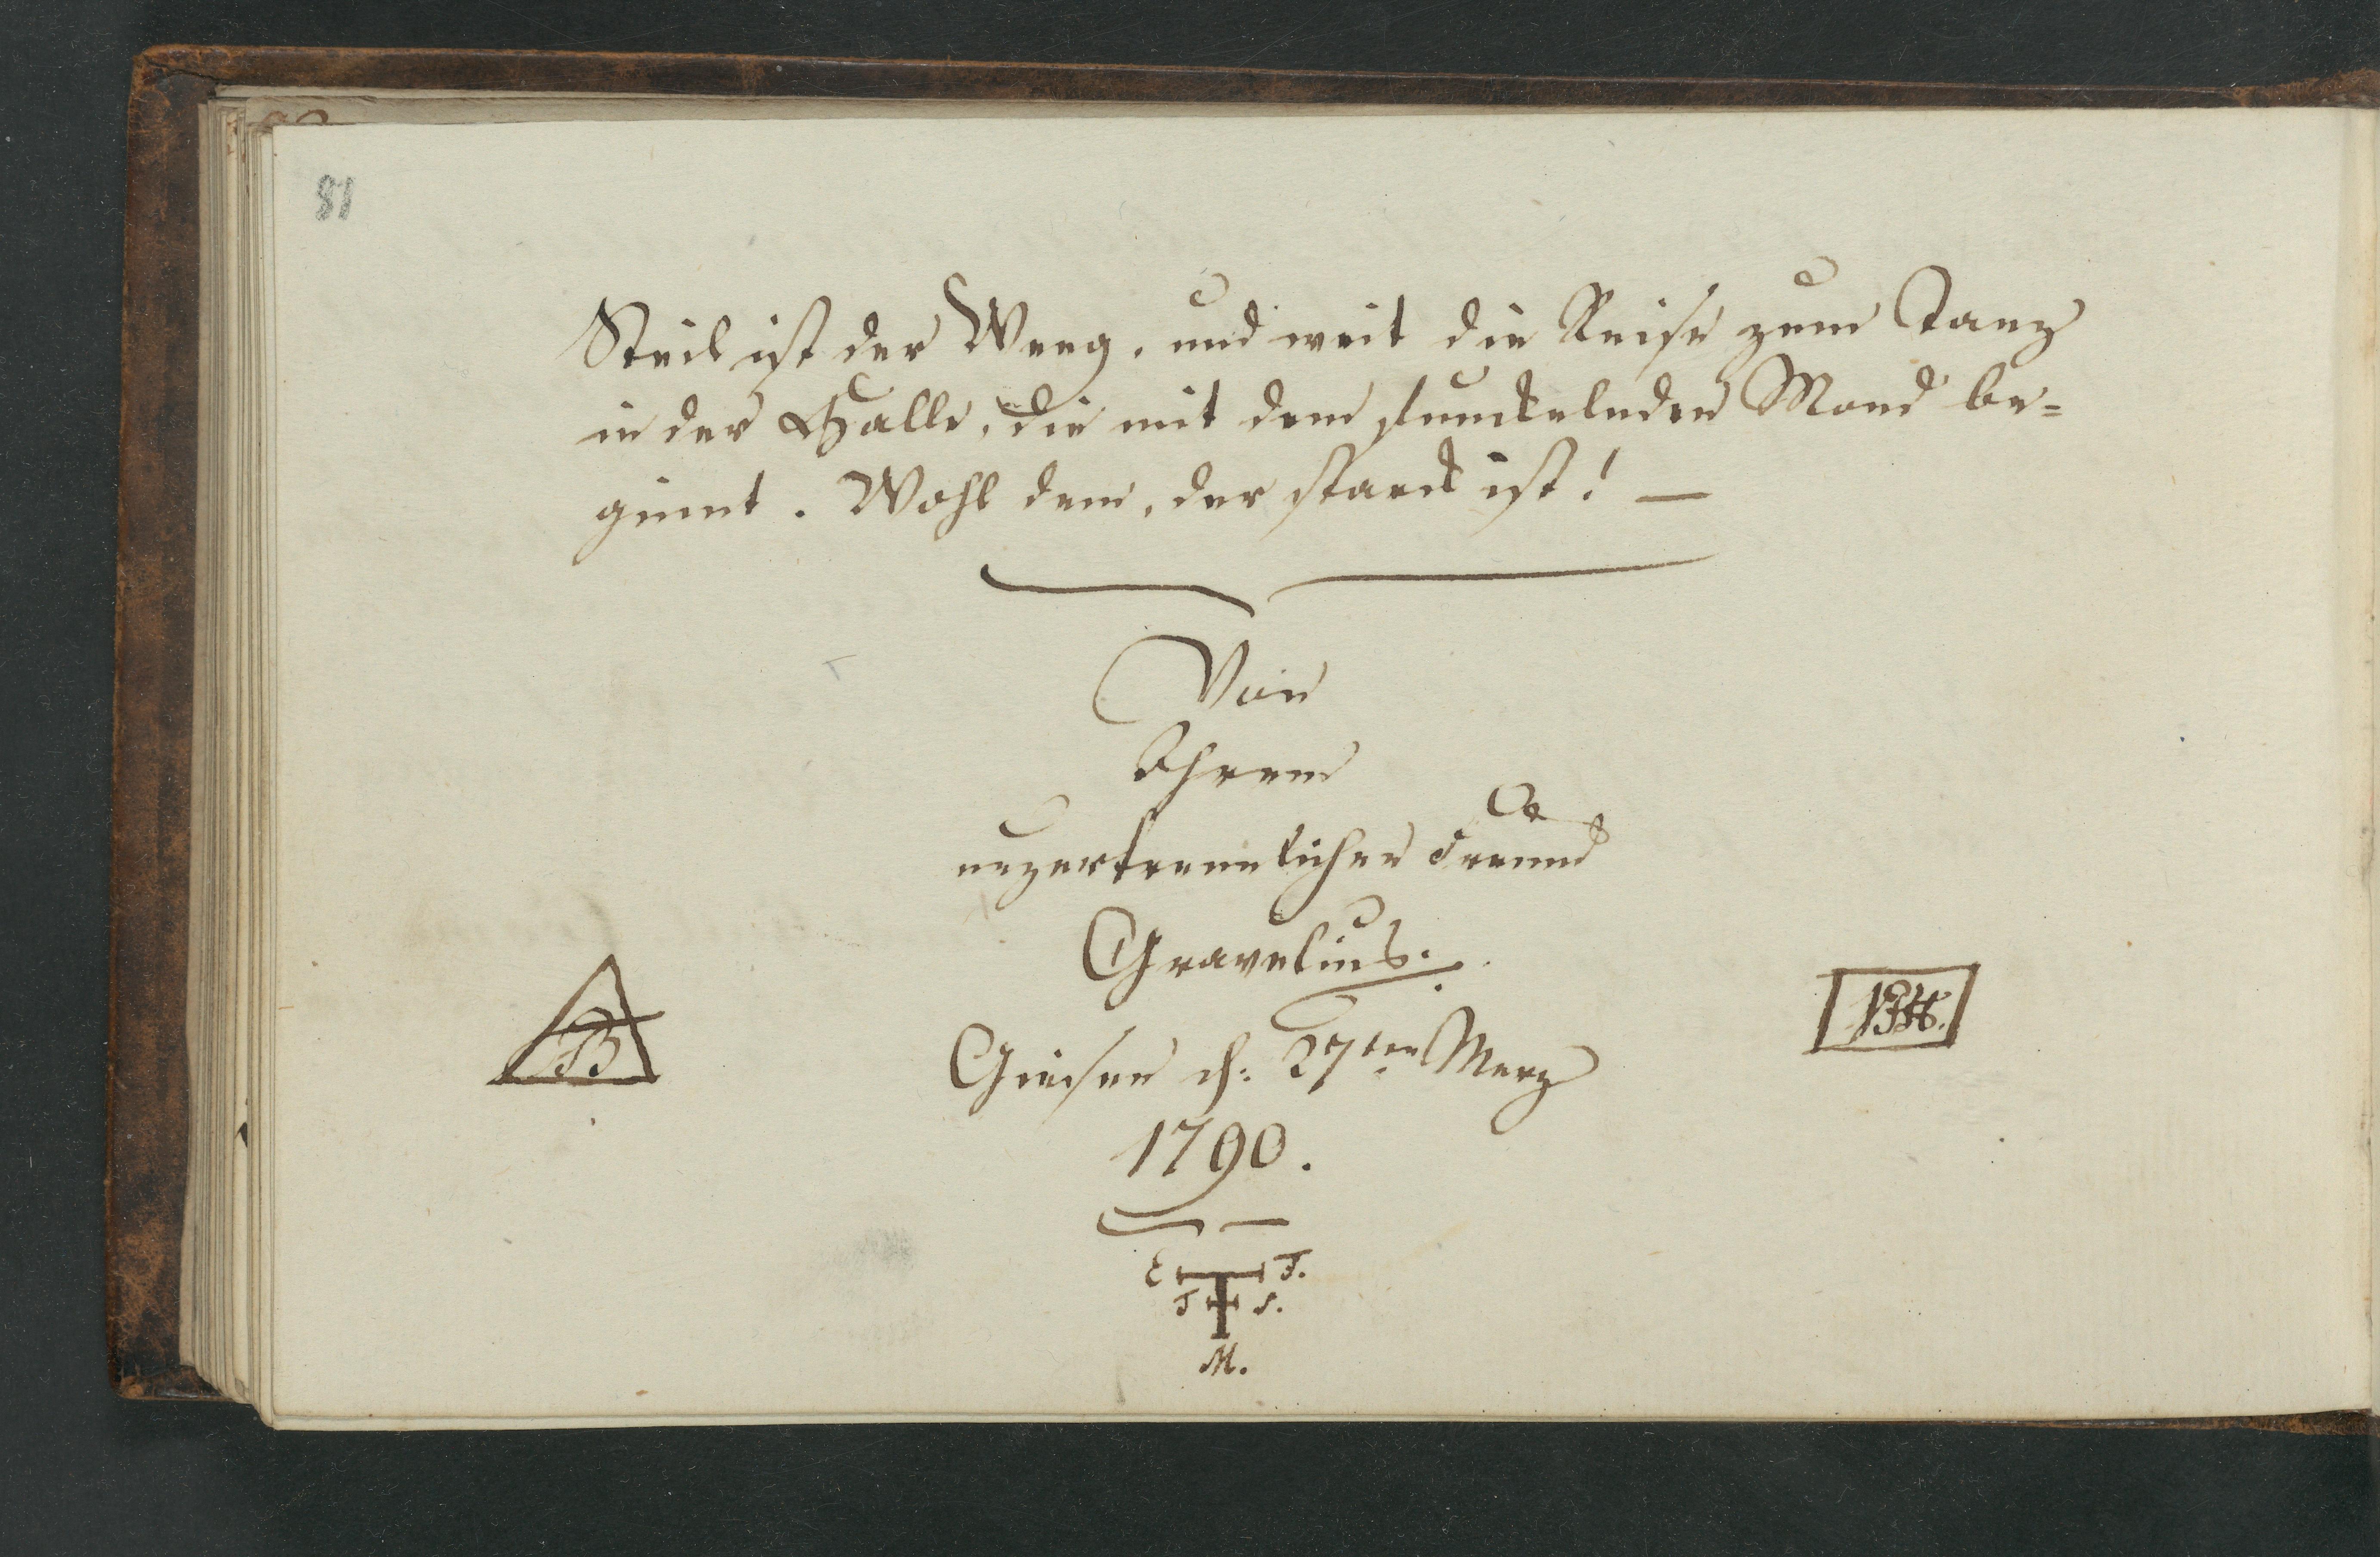 81
Steil ist der Weeg, und weit die Reise zum Tanz
in der Halle, die mit dem funckelnden Mond be=
ginnt. Wohl dem, der starck ist! —
Von
Ihrem
unzertrennlichen Freund
Gravelius.
Giesen d: 27ten Merz
1790.
B
E T.
T S.
M.